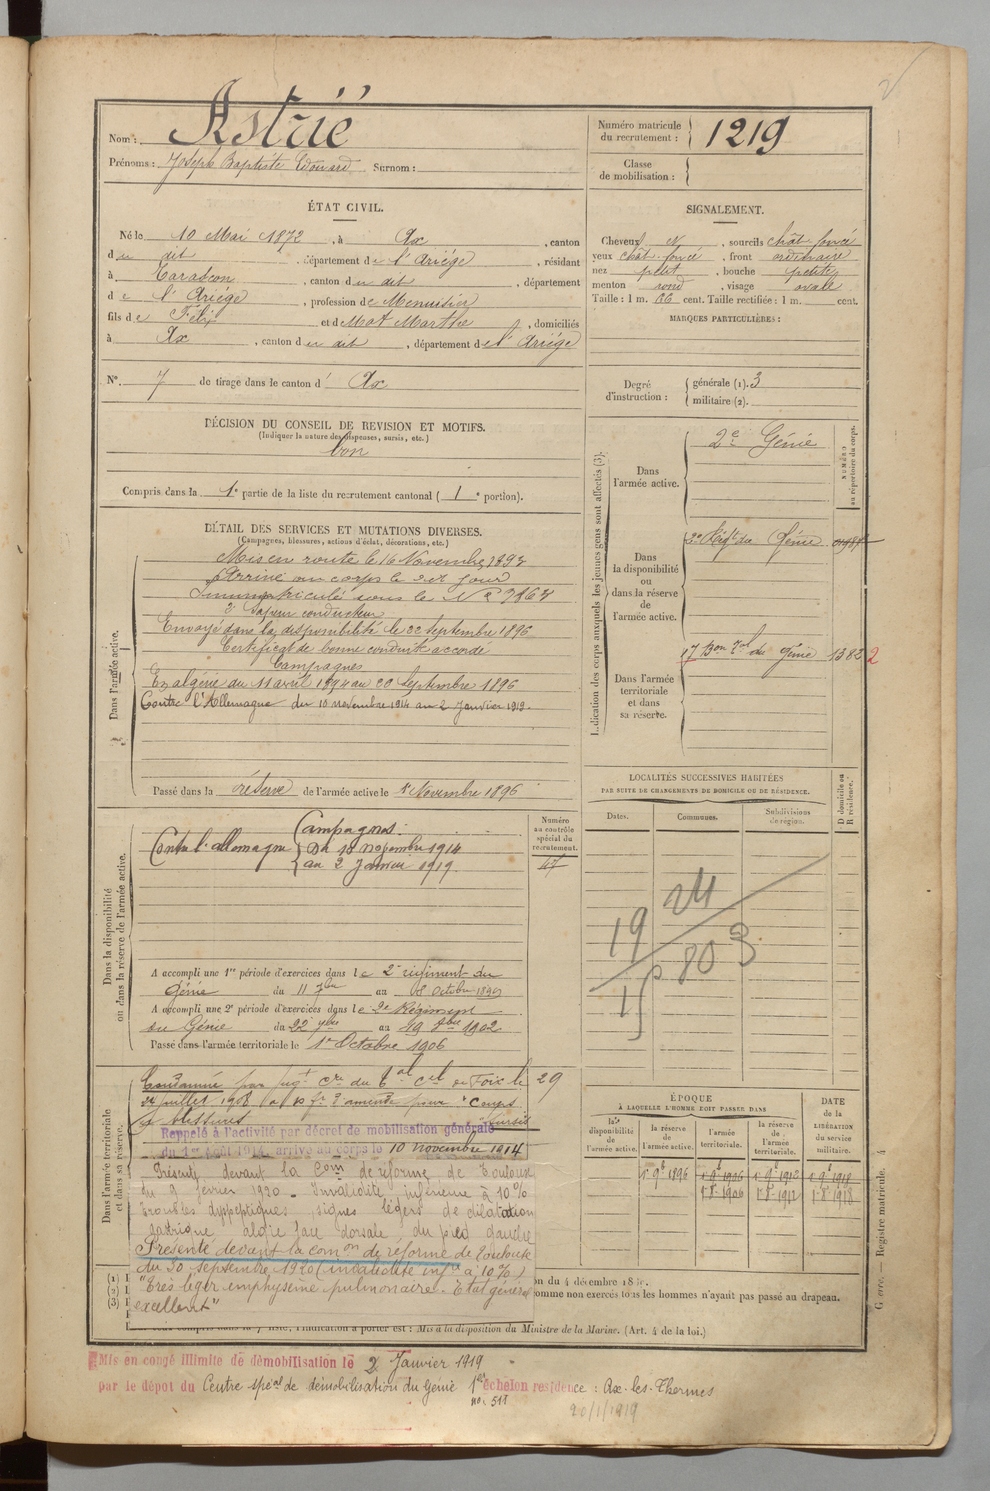 Nom : Astrié
Prénoms : Joseph Baptiste Edouard Surnom :
Numéro matricule du recrutement : 1219
Classe de mobilisation :
ÉTAT CIVIL.
Né le 10 Mai 1872, à Ax, canton
du dit, département de l'Ariége, résidant
à Tarascon, canton du dit, département
de l'Ariége, profession de Menuisier
fils de Félix et de Mat Marthe, domiciliés
à Ax, canton du dit, département de l'Ariége
N° 7 de tirage dans le canton d' Ax
SIGNALEMENT.
Cheveux N, sourcils chât foncé
yeux chât foncé, front ordinaire
nez petit, bouche petite
menton rond, visage ovale
Taille : 1 m. 66 cent. Taille rectifiée : 1 m. cent.
MARQUES PARTICULIÈRES :
Degré d'instruction : générale (1). 3
militaire (2).
DÉCISION DU CONSEIL DE REVISION ET MOTIFS.
(Indiquer la nature des dispenses, sursis, etc.)
bon
Compris dans la 1e partie de la liste du recrutement cantonal ( 1e portion).
DÉTAIL DES SERVICES ET MUTATIONS DIVERSES.
(Campagnes, blessures, actions d'éclat, décorations, etc.)
Dans l'armée active.
Mis en route le 16 Novembre 1893
Arrivé au corps le dit jour
Immatriculé sous le N°
2e Sapeur conducteur
Envoyé dans la disponibilité le 22 Septembre 1896
Certificat de bonne conduite accordé
Campagnes
En algérie du 11 avril 1894 au 20 Septembre 1896
Contre l'Allemagne du 10 novembre 1914 au 2 Janvier 1919.
Passé dans la réserve de l'armée active le 1er Novembre 1896
Indication des corps auxquels les jeunes gens sont affectés (3).
NUMÉRO au répertoire du corps.
Dans l'armée active.
2e Génie
Dans la disponibilité ou dans la réserve de l'armée active.
2e Régt du Génie
Dans l'armée territoriale et dans sa réserve.
17 Bon du Génie 1382 2
LOCALITÉS SUCCESSIVES HABITÉES
PAR SUITE DE CHANGEMENTS DE DOMICILE OU DE RÉSIDENCE.
Dates. Communes. Subdivisions de région. D domicile ou R résidence.
Dans la disponibilité ou dans la réserve de l'armée active.
Numéro au contrôle spécial du recrutement.
47
Campagnes :
Contre l'allemagne Du 10 novembre 1914
au 2 Janvier 1919.
A accompli une 1re période d'exercices dans le 2e régiment du
Génie du 11 7bre au 08 Octobre 1899
A accompli une 2e période d'exercices dans le 2e Régiment
du Génie du 22 7bre au 19 8bre 1902
Passé dans l'armée territoriale le 1er Octobre 1906
Dans l'armée territoriale et dans sa réserve.
Condamné par jugt de Foix le 29
24 juillet 1908 d'amende pour "Coups
et blessures
Rappelé à l'activité par décret de mobilisation générale
du 1er août 1914, arrivé au corps le 10 novembre 1914
Présenté devant la Com de réforme de Toulouse
du 9 février 1920 - Invalidité inférieure à 10%
Troubles dyspeptiques signes légers de dilatation
gastrique algie face dorsale du pied gauche
Présenté devant la comon de réforme de Toulouse
du 30 septembre 1920 (invalidité infre à 10%)
"Très léger emphysème pulmonaire. Etat général
excellent"
ÉPOQUE
À LAQUELLE L'HOMME DOIT PASSER DANS
la disponibilité de l'armée active. la réserve de l'armée active. l'armée territoriale. la réserve de l'armée territoriale.
DATE de la LIBÉRATION du service militaire.
on du 4 décembre
omme non exercés tous les hommes n'ayant pas passé au drapeau.
l'indication à porter est : Mis à la disposition du Ministre de la Marine. (Art. 4 de la loi.)
Registre matricule. 4
Mis en congé illimité de démobilisation le 2 Janvier 1919
par le dépôt du Centre spécial de démobilisation du Génie 1er échelon résidence : Ax-les-Thermes
no. 511
20/1/1919